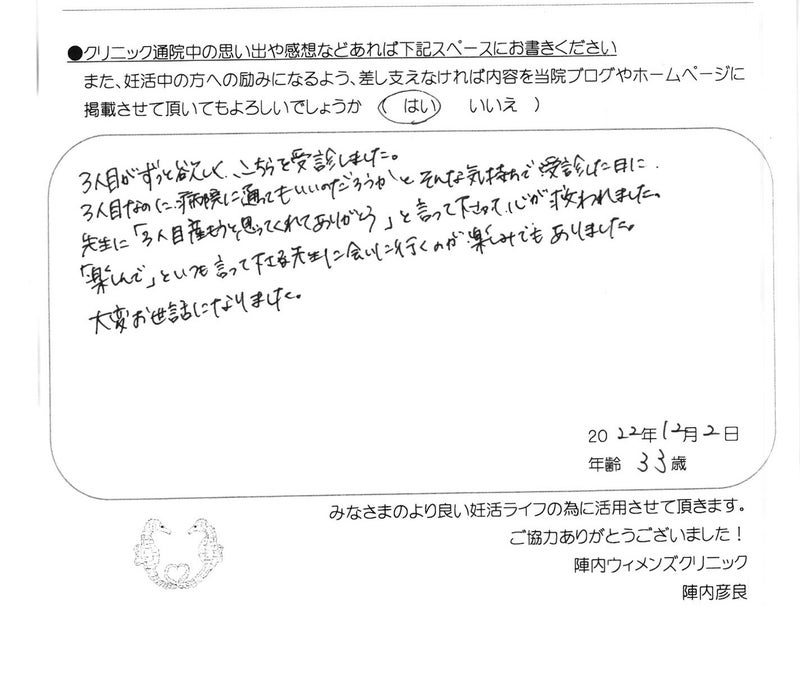 ●クリニック通院中の思い出や感想などあれば下記スペースにお書きください
また、妊活中の方への励みになるよう、差し支えなければ内容を当院ブログやホームページに
掲載させて頂いてもよろしいでしょうか （ はい　いいえ ）
3人目がずっと欲しく、こちらを受診しました。
3人目なのに、病院に通ってもいいのだろうかとそんな気持ちで受診した日に、
先生に「3人目産もうと思ってくれてありがとう」と言って下さって、心が救われました。
「楽しんで」といつも言って下さる先生に会いに行くのが楽しみでもありました。
大変お世話になりました。
2022年12月2日
年齢 33歳
みなさまのより良い妊活ライフの為に活用させて頂きます。
ご協力ありがとうございました！
陣内ウィメンズクリニック
陣内彦良